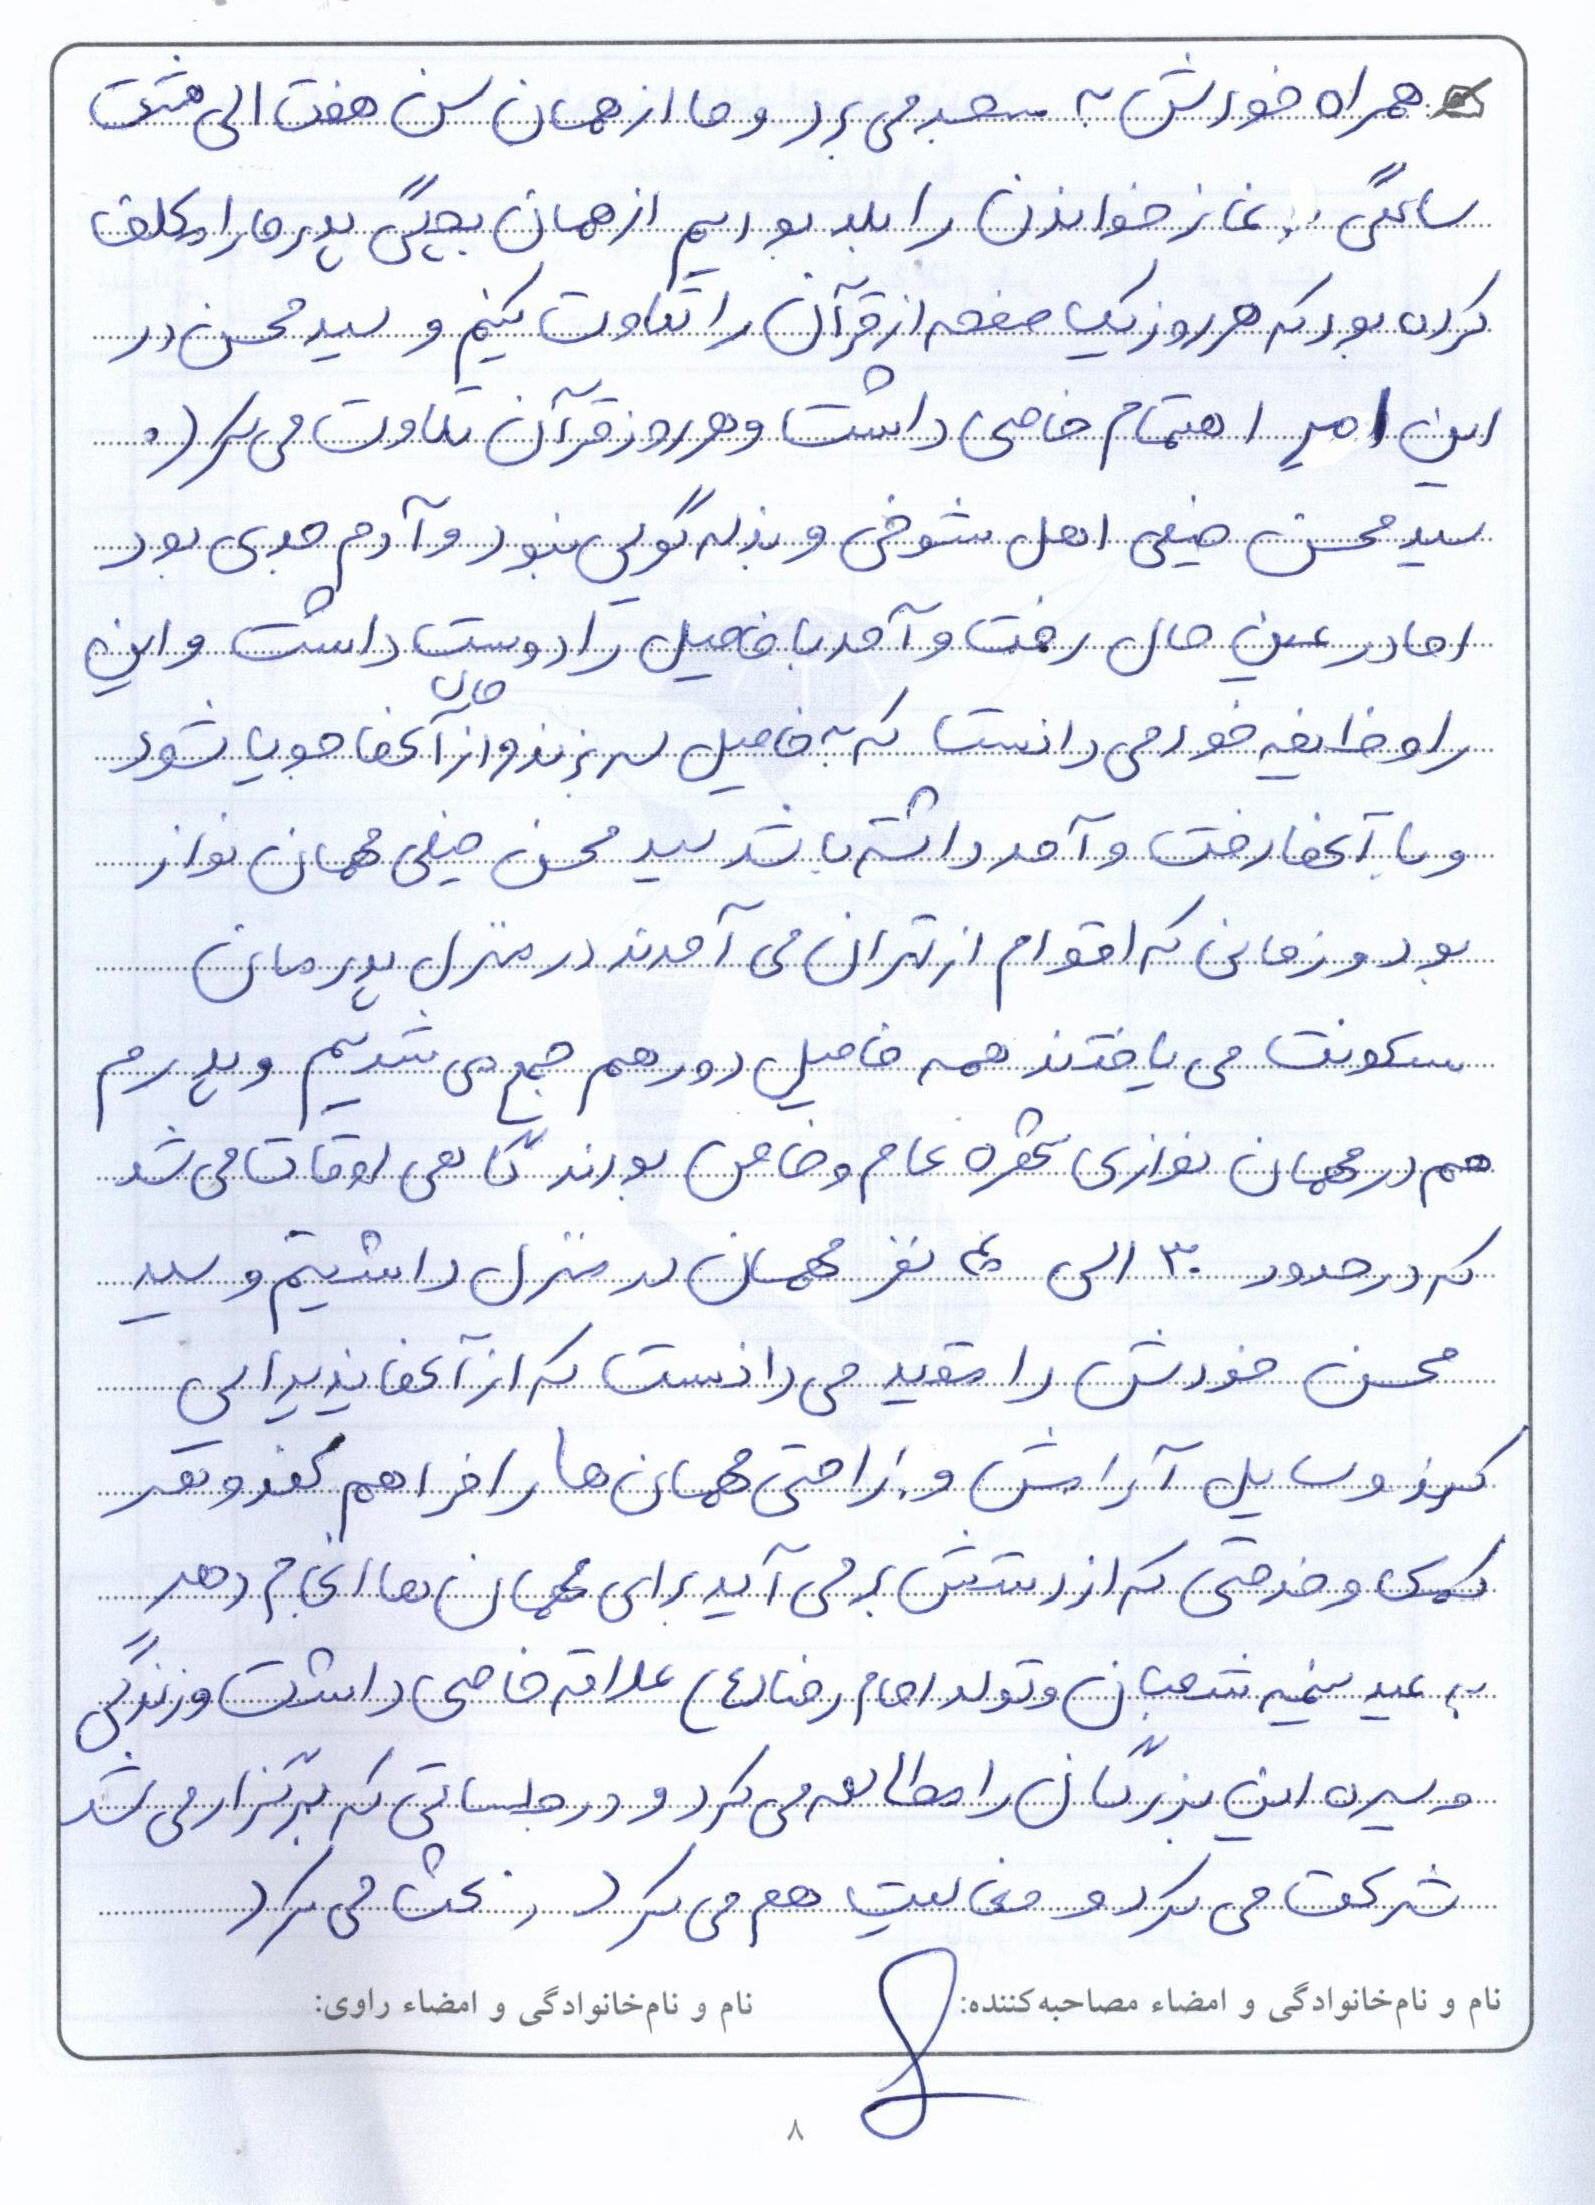 همراه خودش به مسجد می برد و ما از همان سن هفت الی هشت
سالگی نماز خواندن را بلد بودیم از همان بچگی پدر ما را مکلف
کرده بود که هر روز یک صفحه از قرآن را تلاوت کنیم و سید محسن در
این امر اهتمام خاصی داشت و هر روز قرآن تلاوت می کرد.
سید محسن خیلی اهل شوخی و بذله گویی نبود و آدم جدی بود
اما در عین حال رفت و آمد با فامیل را دوست داشت و این
را وظایفه خود می دانست که به فامیل سر بزند و از حال آنها جویا شود
و با آنها رفت و آمد داشته باشد سید محسن خیلی مهمان نواز
بود و زمانی که اقوام از تهران می آمدند در منزل پدرمان
سکونت می یافتند همه فامیل دور هم جمع می شدیم و پدرم
هم در مهمان نوازی شهره عام و خاص بودند گاهی اوقات می شد
که در حدود ۳۰ الی ۴۰ نفر مهمان در منزل داشتیم و سید
محسن خودش را مقید می دانست که از آنها پذیرایی
کند وسایل آرامش و راحتی مهمان ها را فراهم کند و هر
کمکی و خدمتی که از دستش بر می آید برای مهمان ها انجام دهد
به عید نیمه شعبان و تولد امام رضا (ع) علاقه خاصی داشت و زندگی
و سیره این بزرگان را مطالعه می کرد و در جلساتی که برگزار می شد
شرکت می کرد و فعالیت هم می کرد، بحث می کرد
نام و نام‌خانوادگی و امضاء مصاحبه‌کننده:
نام و نام‌خانوادگی و امضاء راوی:
۸